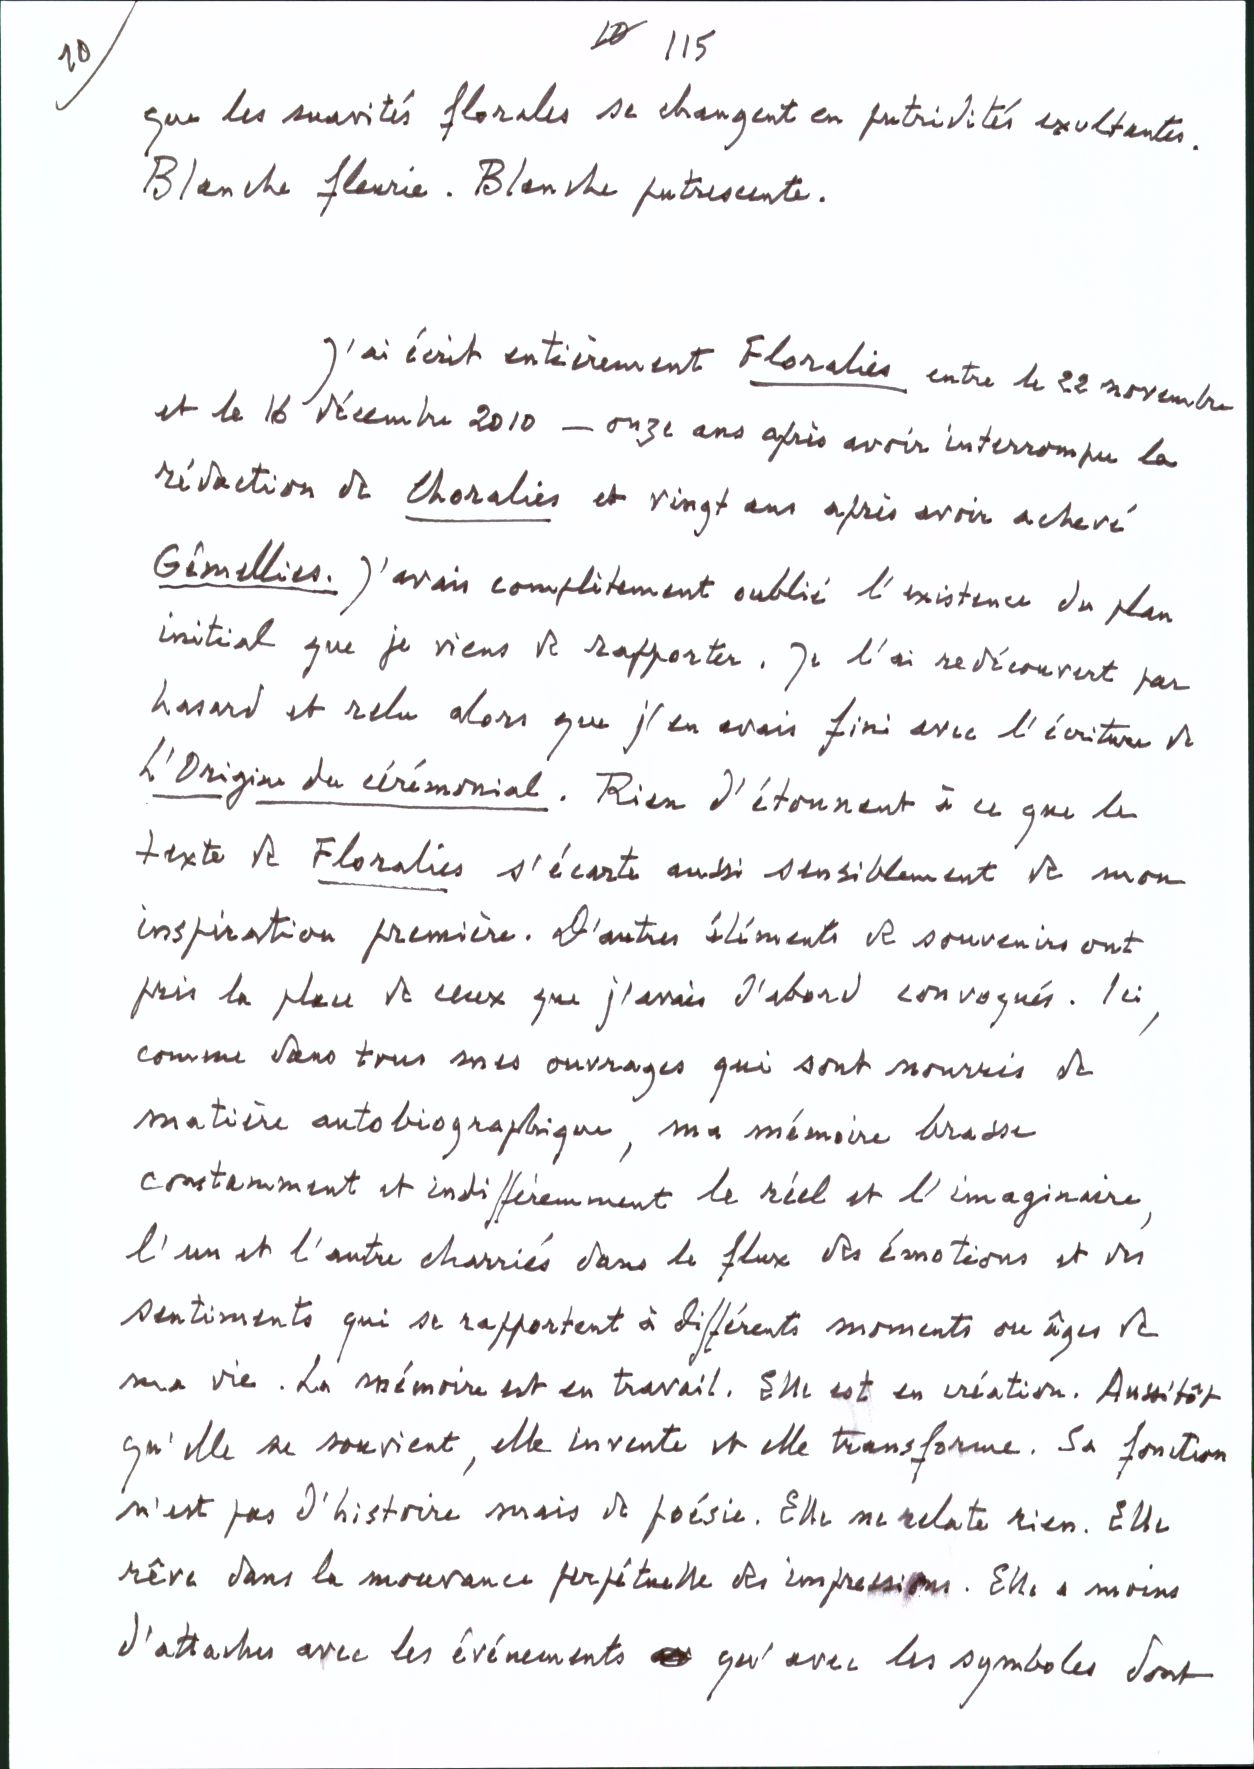 10
10 115
que les suavités florales se changent en putridités exultantes.
Blanche fleurie. Blanche putrescente.
J'ai écrit entièrement Floralies entre le 22 novembre
et le 16 décembre 2010 — onze ans après avoir interrompu la
rédaction de Choralies et vingt ans après avoir achevé
Gémellies. J'avais complètement oublié l'existence du plan
initial que je viens de rapporter. Je l'ai redécouvert par
hasard et relu alors que j'en avais fini avec l'écriture de
L'Origine du cérémonial. Rien d'étonnant à ce que le
texte de Floralies s'écarte aussi sensiblement de mon
inspiration première. D'autres éléments de souvenirs ont
pris la place de ceux que j'avais d'abord convoqués. Ici,
comme dans tous mes ouvrages qui sont nourris de
matière autobiographique, ma mémoire brasse
constamment et indifféremment le réel et l'imaginaire,
l'un et l'autre charriés dans le flux des émotions et des
sentiments qui se rapportent à différents moments ou âges de
ma vie. La mémoire est en travail. Elle est en création. Aussitôt
qu'elle se souvient, elle invente et elle transforme. Sa fonction
n'est pas d'histoire mais de poésie. Elle ne relate rien. Elle
rêve dans la mouvance perpétuelle des impressions. Elle a moins
d'attaches avec les événements qu'avec les symboles dont